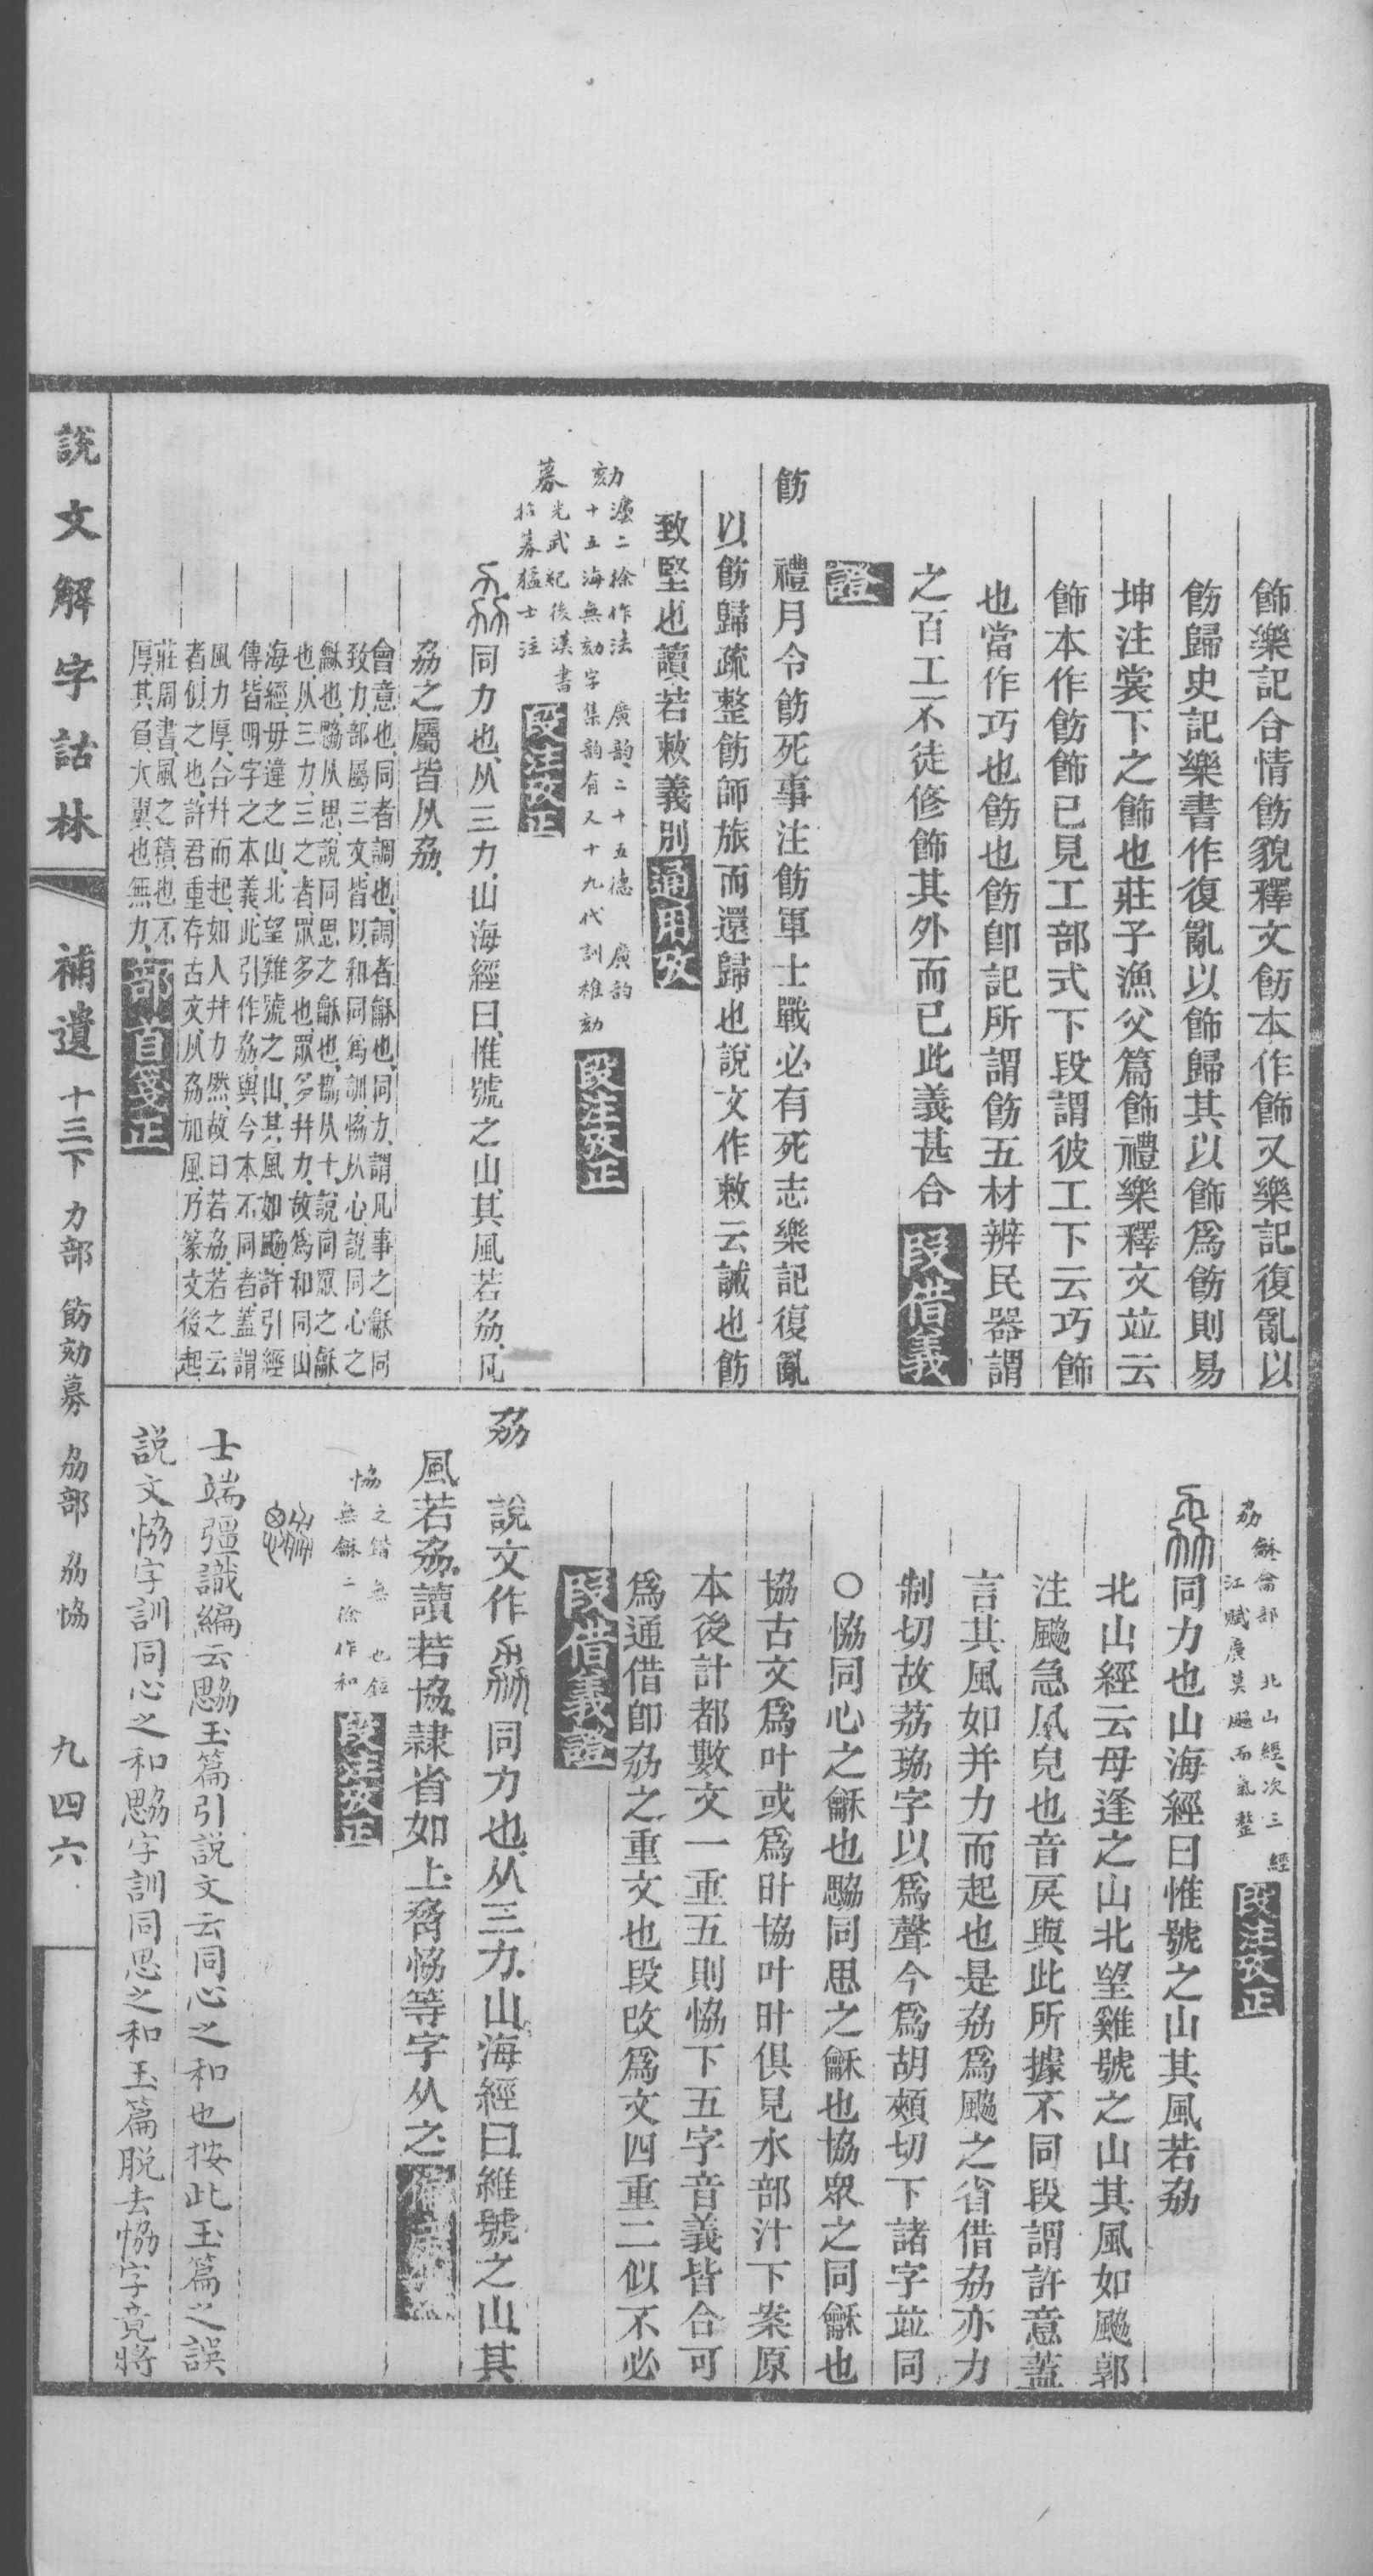 飾樂記合情飭貌釋文飭本作飾又樂記復亂以
飭歸史記樂書作復亂以飾歸其以飾爲飭則易
坤注裳下之飾也莊子漁父篇飾禮樂釋文竝云
飾本作飭飾已見工部式下段謂彼工下云巧飾
也當作巧也飭也飭卽記所謂飭五材辨民器謂
之百工不徒修飾其外而已此義甚合 段借義
證
飭 禮月令飭死事注飭軍士戰必有死志樂記復亂
以飭歸疏整飭師旅而還歸也說文作敕云誡也飭
致堅也讀若敕義別 通用攷
劾 灋二徐作法 廣韵二十五德 廣韵
十五海無劾字集韵有又十九代訓推劾 段注攷正
募 光武紀後漢書
招募猛士注 段注攷正
同力也从三力山海經曰惟號之山其風若劦凡
劦之屬皆从劦
會意也同者調也調者龢也同力謂凡事之龢同
致力部屬三文皆以和同爲訓恊从心說同心之
龢也勰从思說同思之龢也協从十說同眾之龢
也从三力三之者眾多也眾多幷力故爲和同山
海經毋逢之山北望雞號之山其風如飈許引經
傳皆明字之本義此引作劦與今本不同者蓋謂
風力厚合幷而起如人幷力然故曰若劦若之云
者似之也許君重存古文从劦加風乃篆文後起
莊周書風之積也不
厚其負大翼也無力 部首箋正
劦 龢龠部 北山經次三經
江賦廣莫飈而氣整 段注攷正
同力也山海經曰惟號之山其風若劦
北山經云母逢之山北望雞號之山其風如飈郭
注飈急風皃也音戾與此所據不同段謂許意蓋
言其風如幷力而起也是劦爲飈之省借劦亦力
制切故荔珕字以爲聲今爲胡頰切下諸字竝同
○恊同心之龢也勰同思之龢也協眾之同龢也
協古文爲叶或爲旪協叶旪俱見水部汁下案原
本後計都數文一重五則恊下五字音義皆合可
爲通借卽劦之重文也段改爲文四重二似不必
段借義證
劦 說文作 同力也从三力山海經曰維號之山其
風若劦讀若協隸省如上脅恊等字从之
恊 之 無 也
無龢二徐作和 段注攷正
士端彊識編云勰玉篇引說文云同心之和也按此玉篇之誤
說文恊字訓同心之和勰字訓同思之和玉篇脱去恊字竟將
說文解字詁林 補遺 十三下 力部 飭劾募 劦部 劦恊 九四六